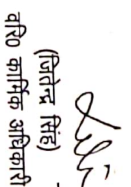 (जितेन्द्र सिंह)
वरि0 कार्मिक अधिकारी